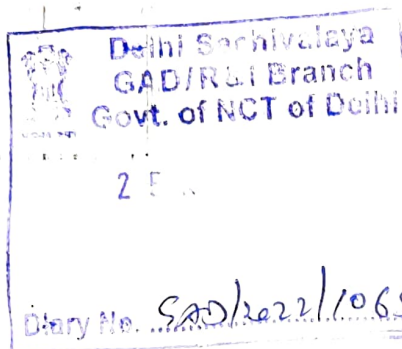 Delhi Sachivalaya
GAD/R&I Branch
Govt. of NCT of Delhi
2
Diary No. GAD/2022/106